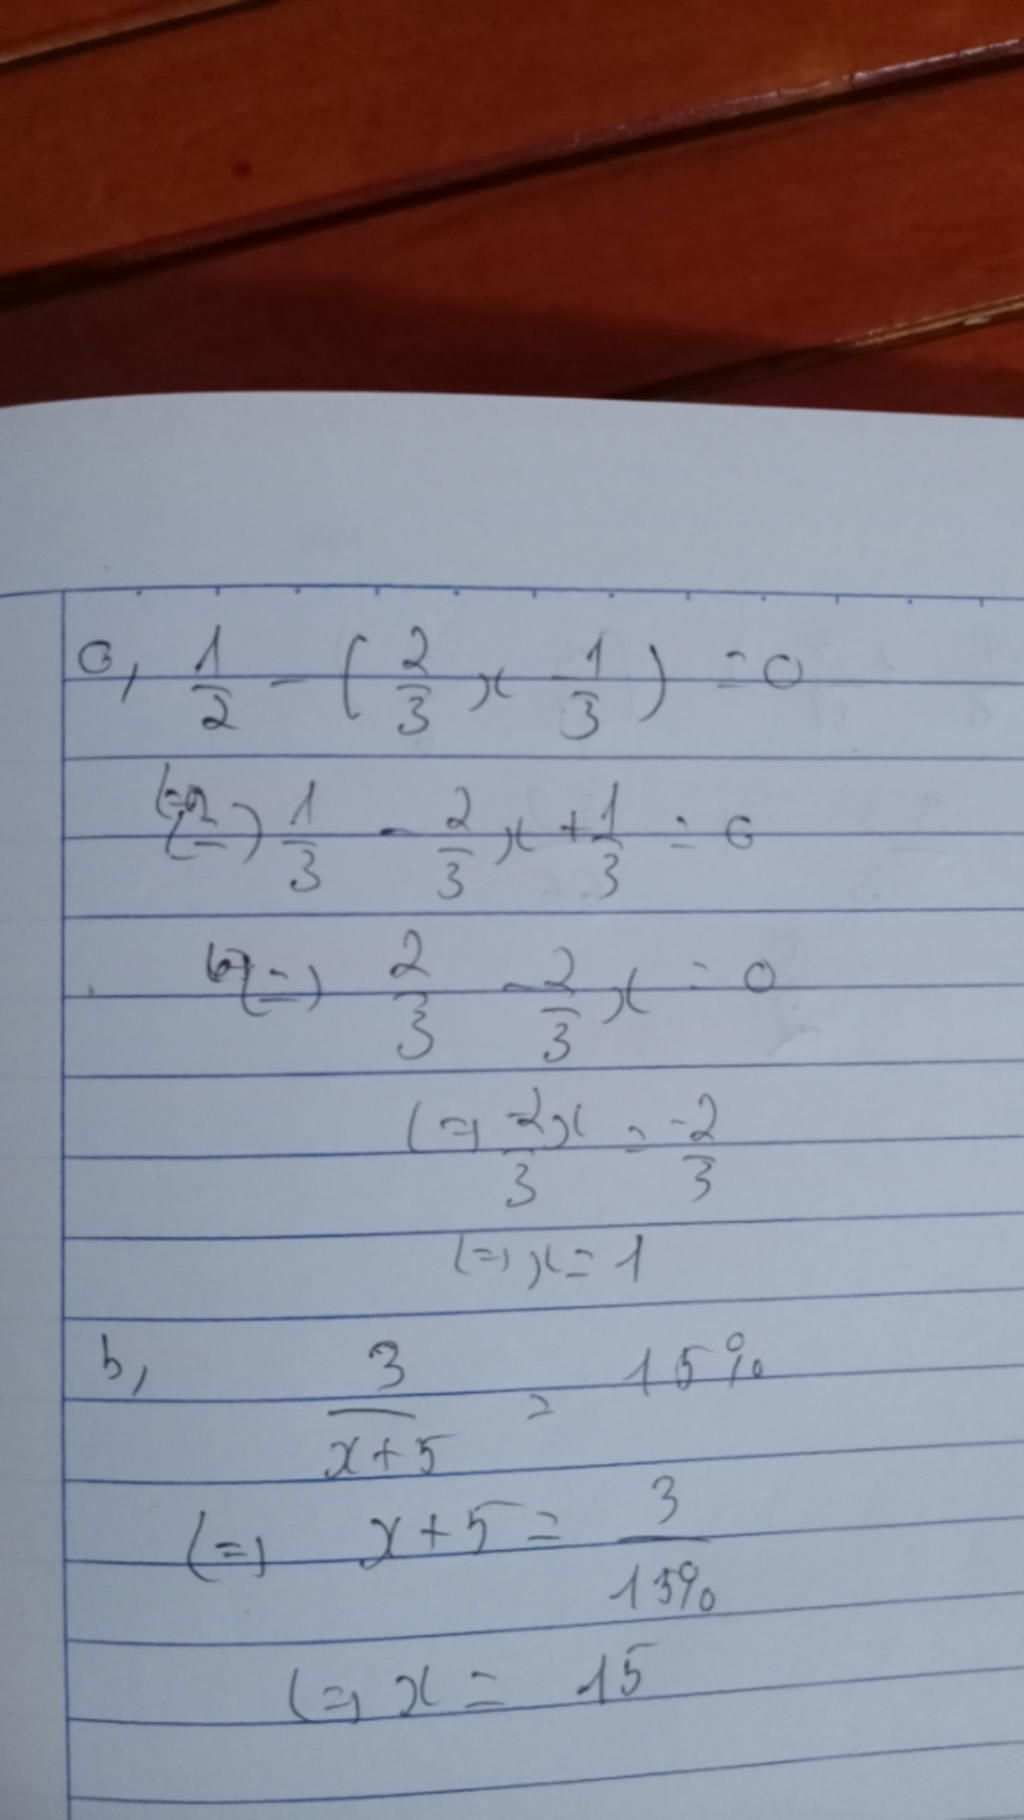 a, 1/2 - (2/3 x 1/3) = 0
(=) 1/3 - 2/3 x + 1/3 = 0
(=) 2/3 - 2/3 x = 0
(=) -2x/3 = -2/3
(=) x = 1
b, 3/(x+5) = 15%
(=) x+5 = 3/15%
(=) x = 15